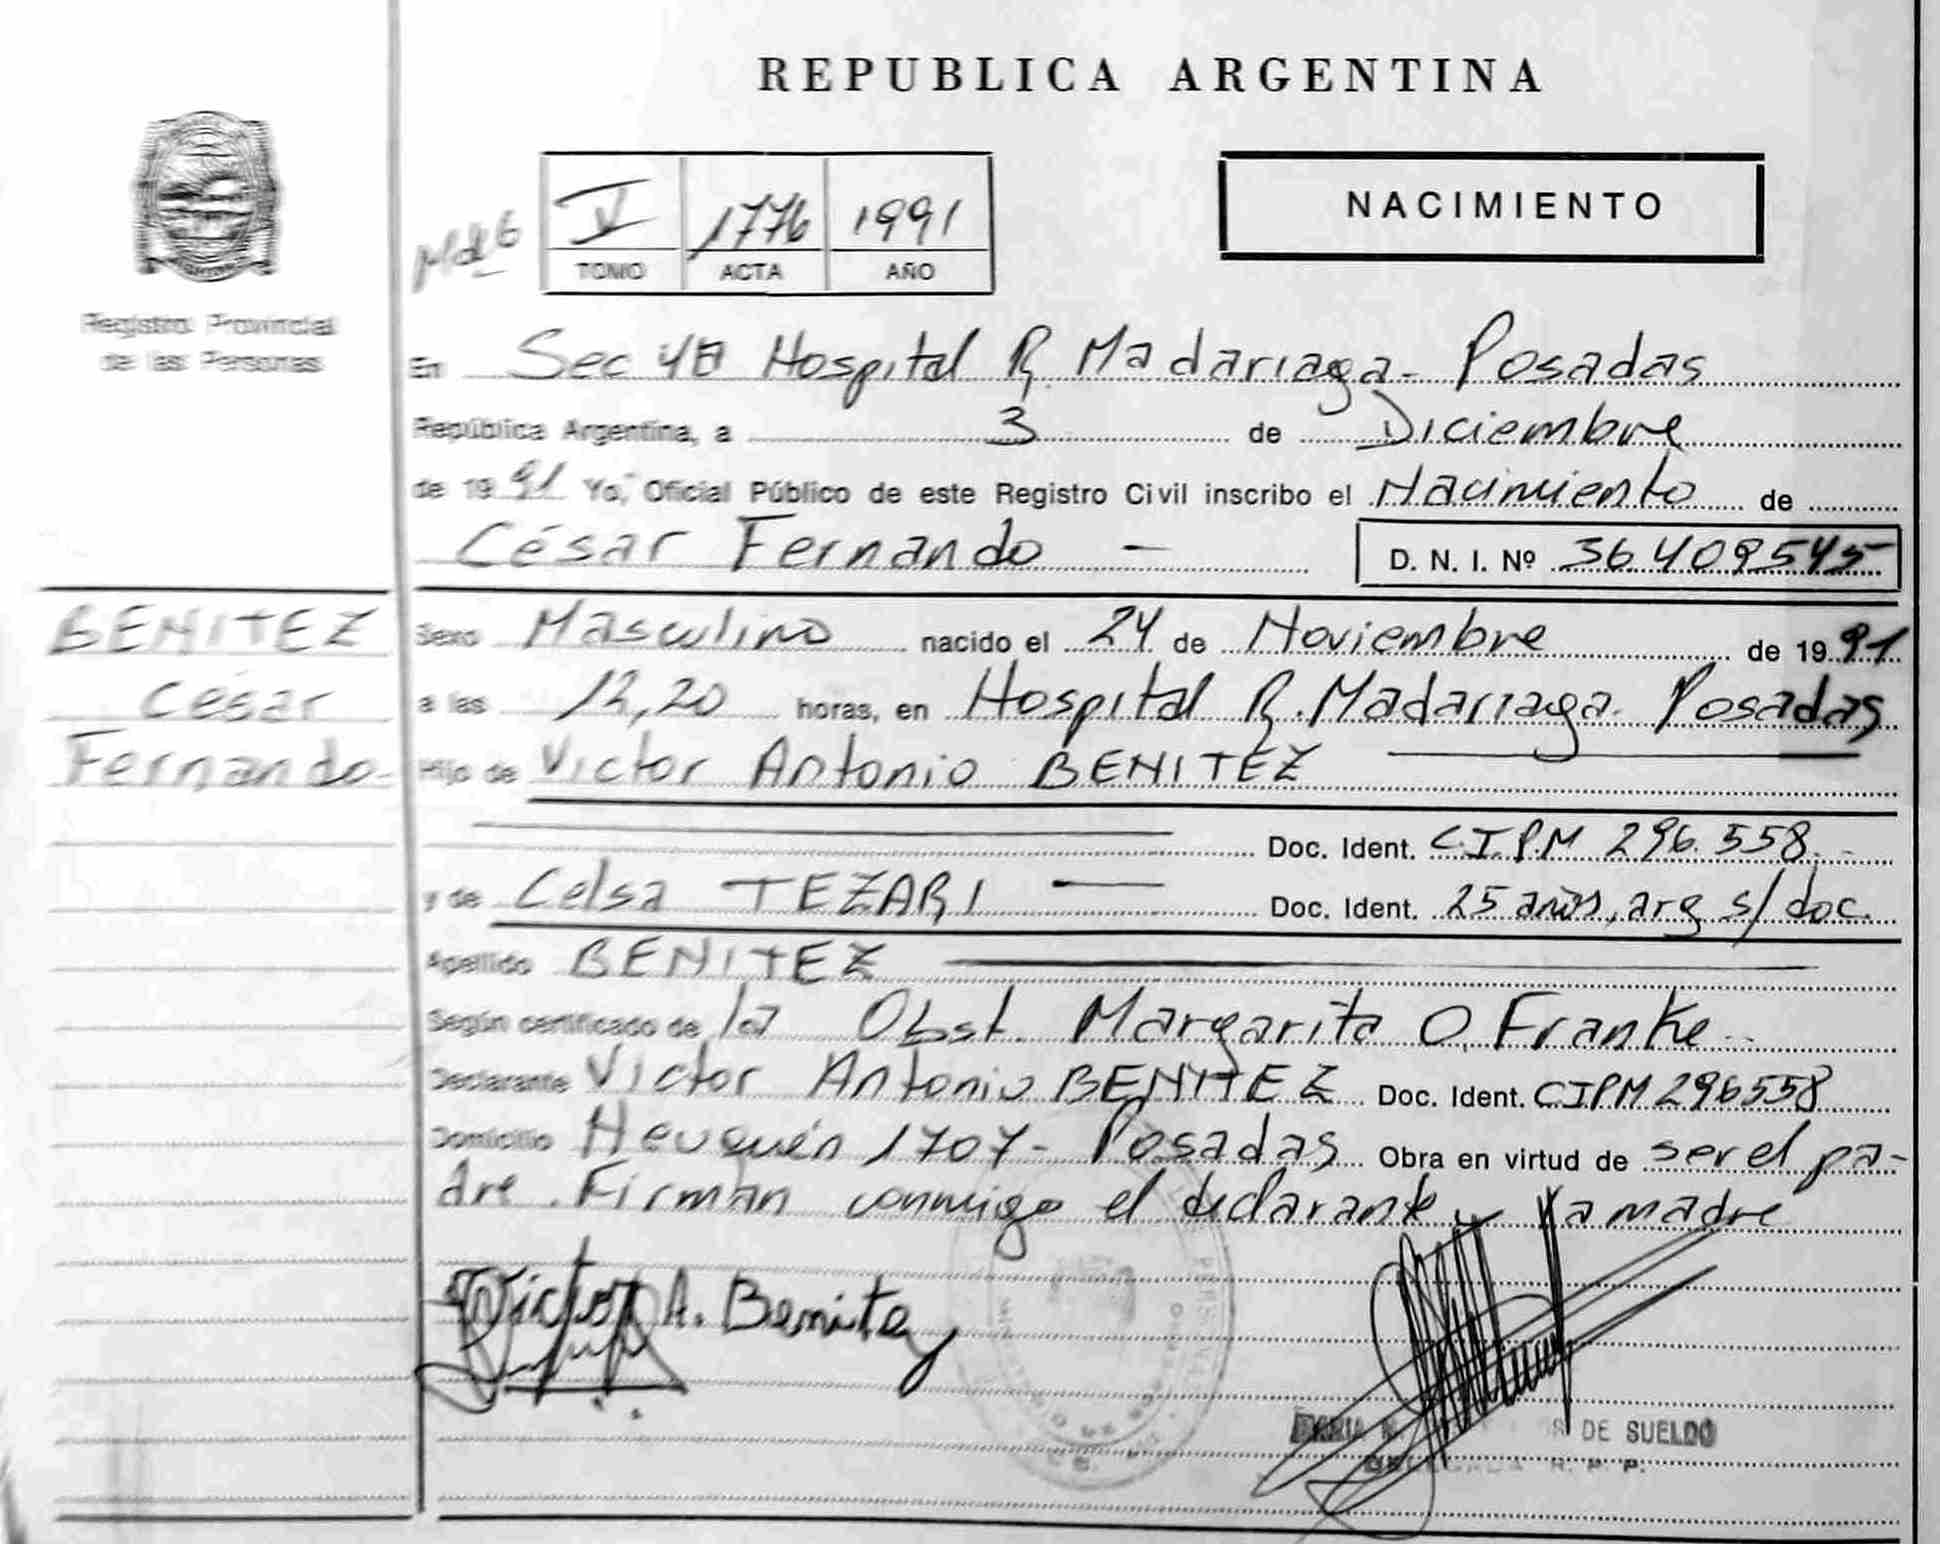 REPUBLICA ARGENTINA
Registro Provincial
de las Personas
V 1776 1991
TOMO ACTA AÑO
NACIMIENTO
En Sec 4ª Hospital R. Madariaga - Posadas
República Argentina, a 3 de Diciembre
de 1991 Yo, Oficial Público de este Registro Civil inscribo el Nacimiento de
César Fernando — D. N. I. Nº 36409545
BENITEZ
César
Fernando-
Sexo Masculino nacido el 24 de Noviembre de 1991
a las 12,20 horas, en Hospital R. Madariaga. Posadas
Hijo de Victor Antonio BENITEZ
Doc. Ident. C.I.P.M 296.558.-
y de Celsa TEZARI — Doc. Ident. 25 años, arg s/doc.
Apellido BENITEZ
Según certificado de la Obst. Margarita O. Franke
Declarante Victor Antonio BENITEZ Doc. Ident. CIPM 296558
Domicilio Neuquén 1707- Posadas Obra en virtud de ser el pa-
dre. Firman conmigo el declarante y la madre
Victor A. Benitez
MARIA DE SUELDO
DELEGADA R. P. P.